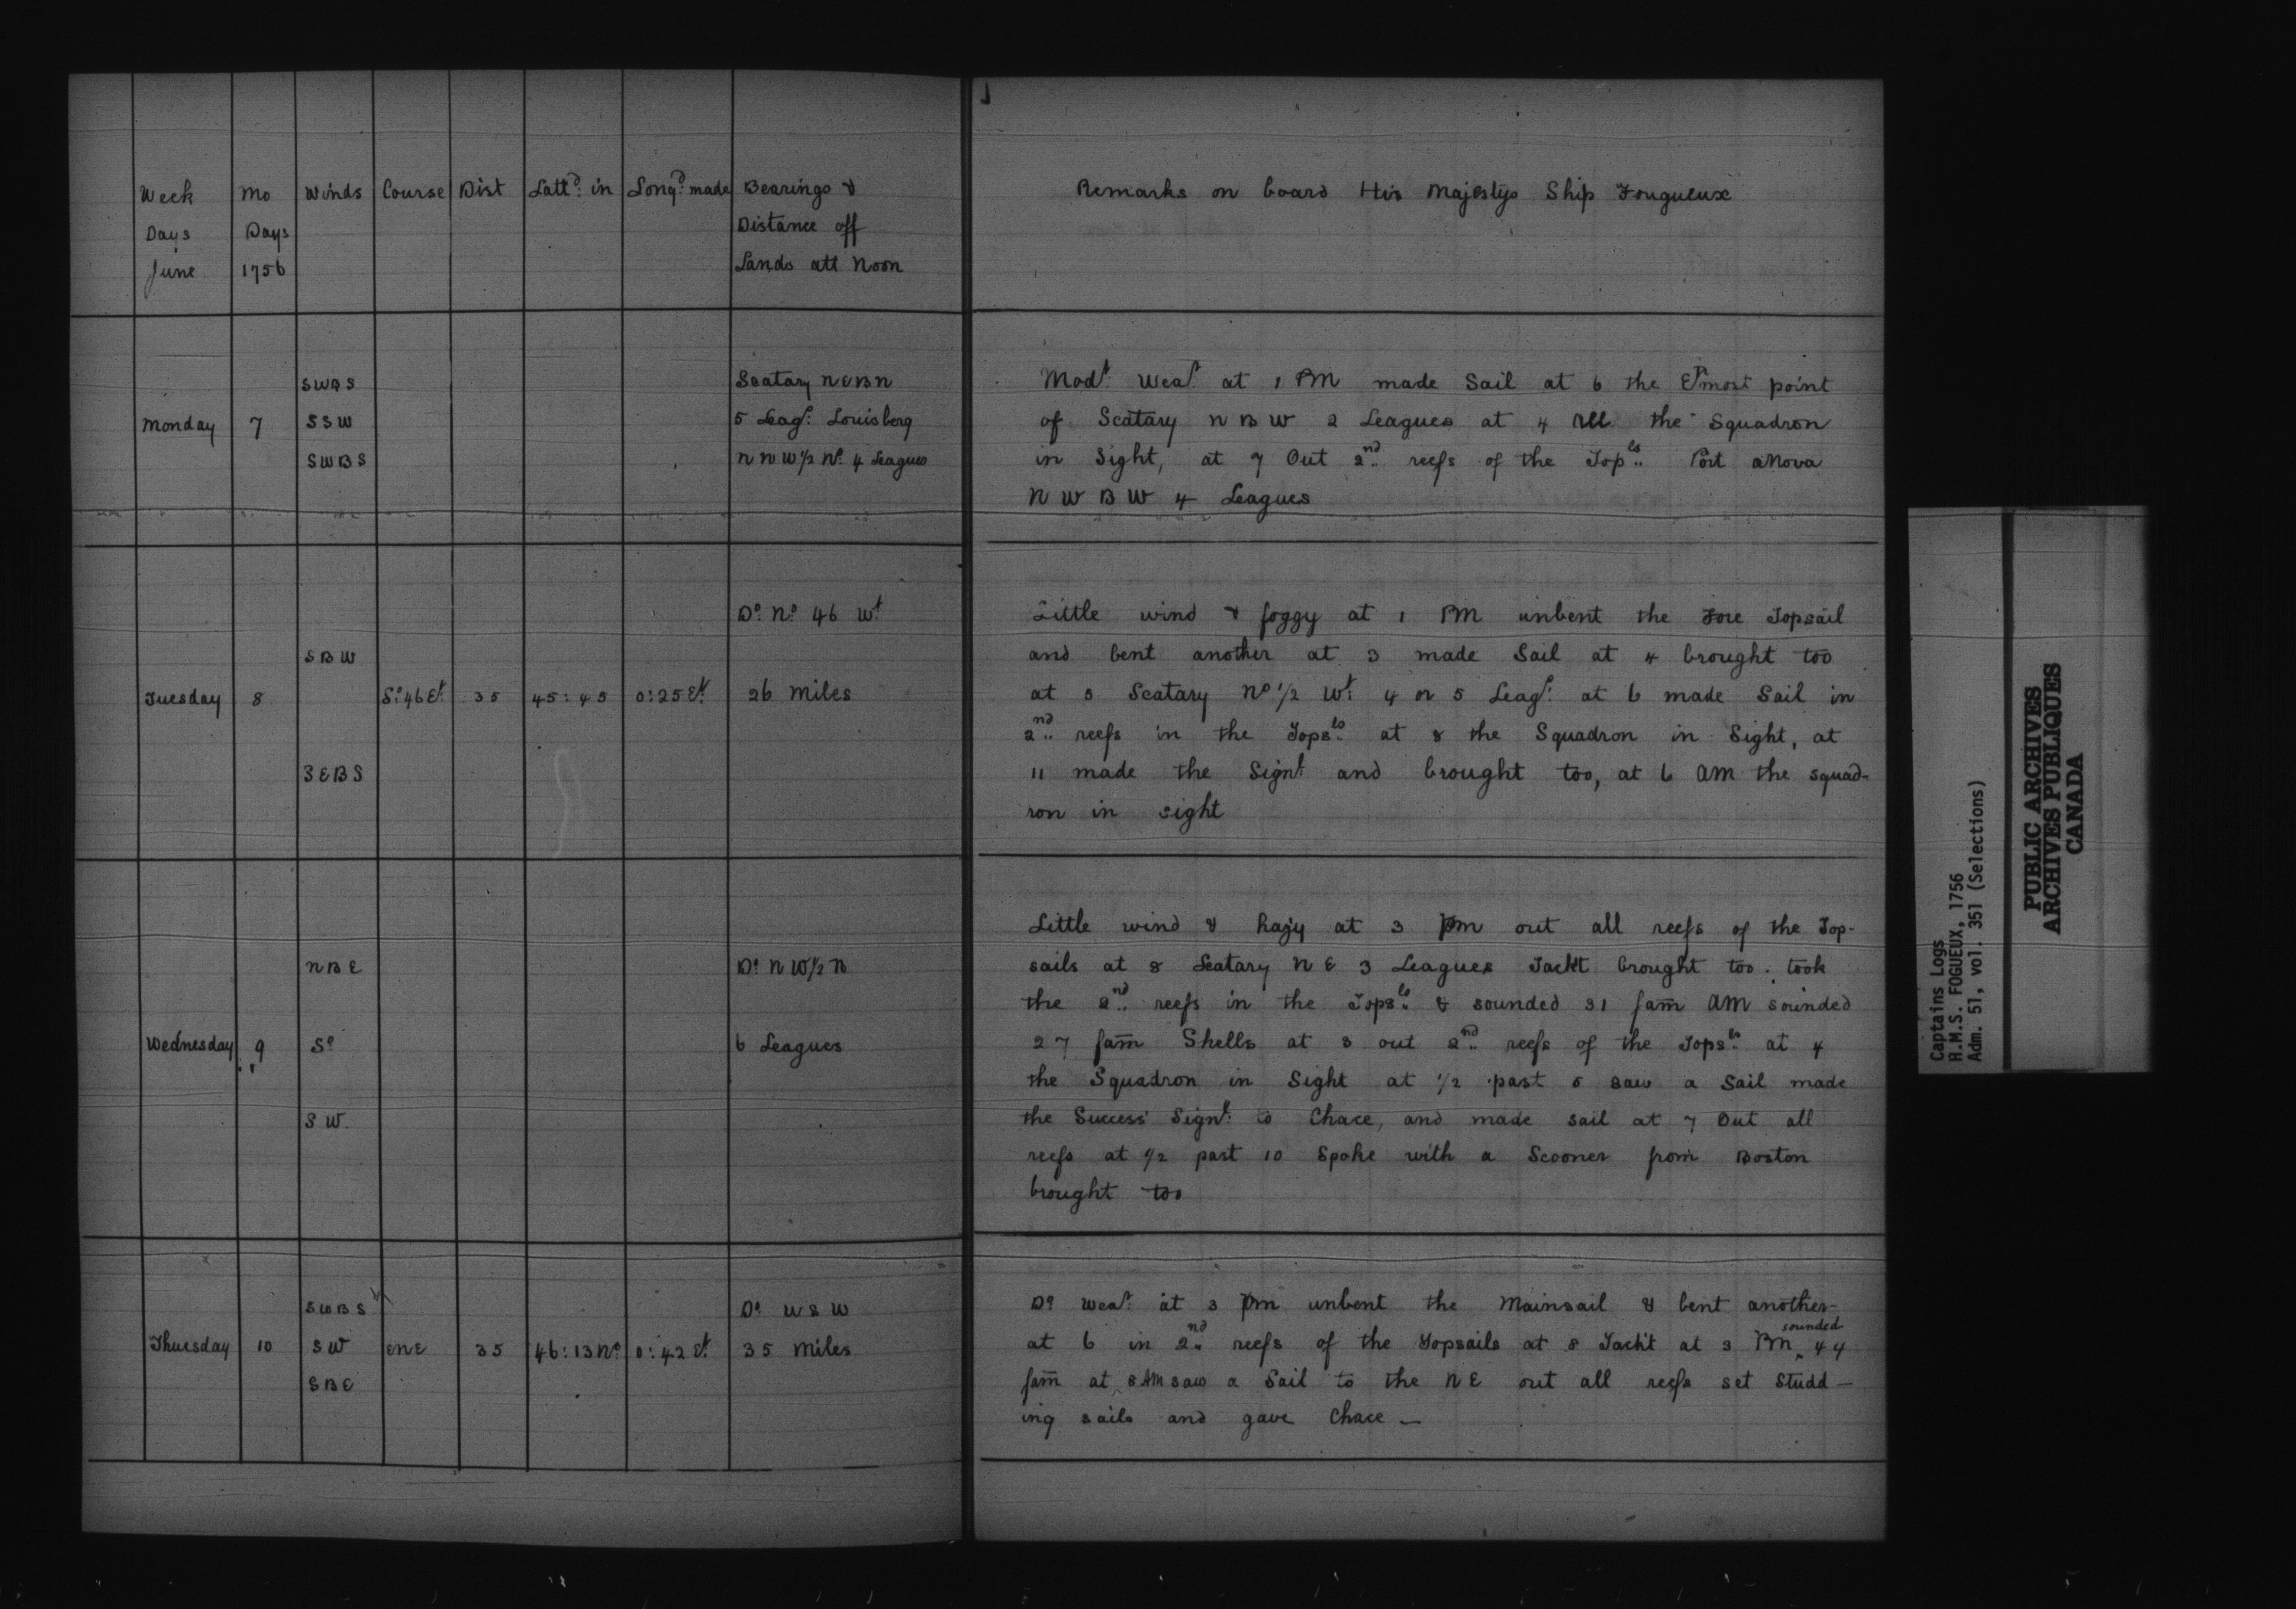 Week Mo Winds Course Dist Lattd: in Longd: made Bearings &
Days Days Distance off
June 1756 Lands att Noon
Remarks on board His Majestys Ship Fougueux
SWBS Scatary NEBN
Monday 7 SSW 5 Leags: Louisberg
SWBS NNW1/2 No: 4 Leagues
Modt: Wear: at 1 PM made Sail at 6 the Ermost point
of Scatary NBW 2 Leagues at 4 All the Squadron
in Sight, at 7 Out 2nd reefs of the Topls Port aNova
NWBW 4 Leagues
Do: No: 46 Wt
SBW
Tuesday 8 So: 46 Et: 35 45:45 0:25 Et: 26 Miles
SEBS
Little wind & foggy at 1 PM unbent the Fore Topsail
and bent another at 3 made Sail at 4 brought too
at 5 Scatary No 1/2 Wt: 4 or 5 Leags: at 6 made Sail in
2nd reefs in the Topsls at 8 the Squadron in Sight, at
11 made the Signl: and brought too, at 6 AM the squad-
ron in sight
NBE Do NW1/2 N
Wednesday 9 So 6 Leagues
SW
Little wind & hazy at 3 pm out all reefs of the Top-
sails at 8 Scatary NE 3 Leagues Tackt brought too. took
the 2nd reefs in the Topsls & sounded 31 fam̅ AM sounded
27 fam̅ Shells at 3 out 2nd reefs of the Topsls at 4
the Squadron in Sight at 1/2 past 5 saw a Sail made
the Success' Signl: to Chace, and made sail at 7 Out all
reefs at 1/2 past 10 Spoke with a Scooner from Boston
brought too
SWBS Do: WSW
Thursday 10 SW ENE 35 46:13 No: 0:42 Et: 35 Miles
SBE
Do Wear: at 3 pm unbent the Mainsail & bent another
at 6 in 2nd reefs of the Topsails at 8 Tack't at 3 PM sounded 44
fam̅ at 8 AM saw a Sail to the NE out all reefs set Studd-
ing sails and gave Chace —
Captains Logs
H.M.S. FOGUEUX, 1756
Adm. 51, vol. 351 (Selections)
PUBLIC ARCHIVES
ARCHIVES PUBLIQUES
CANADA